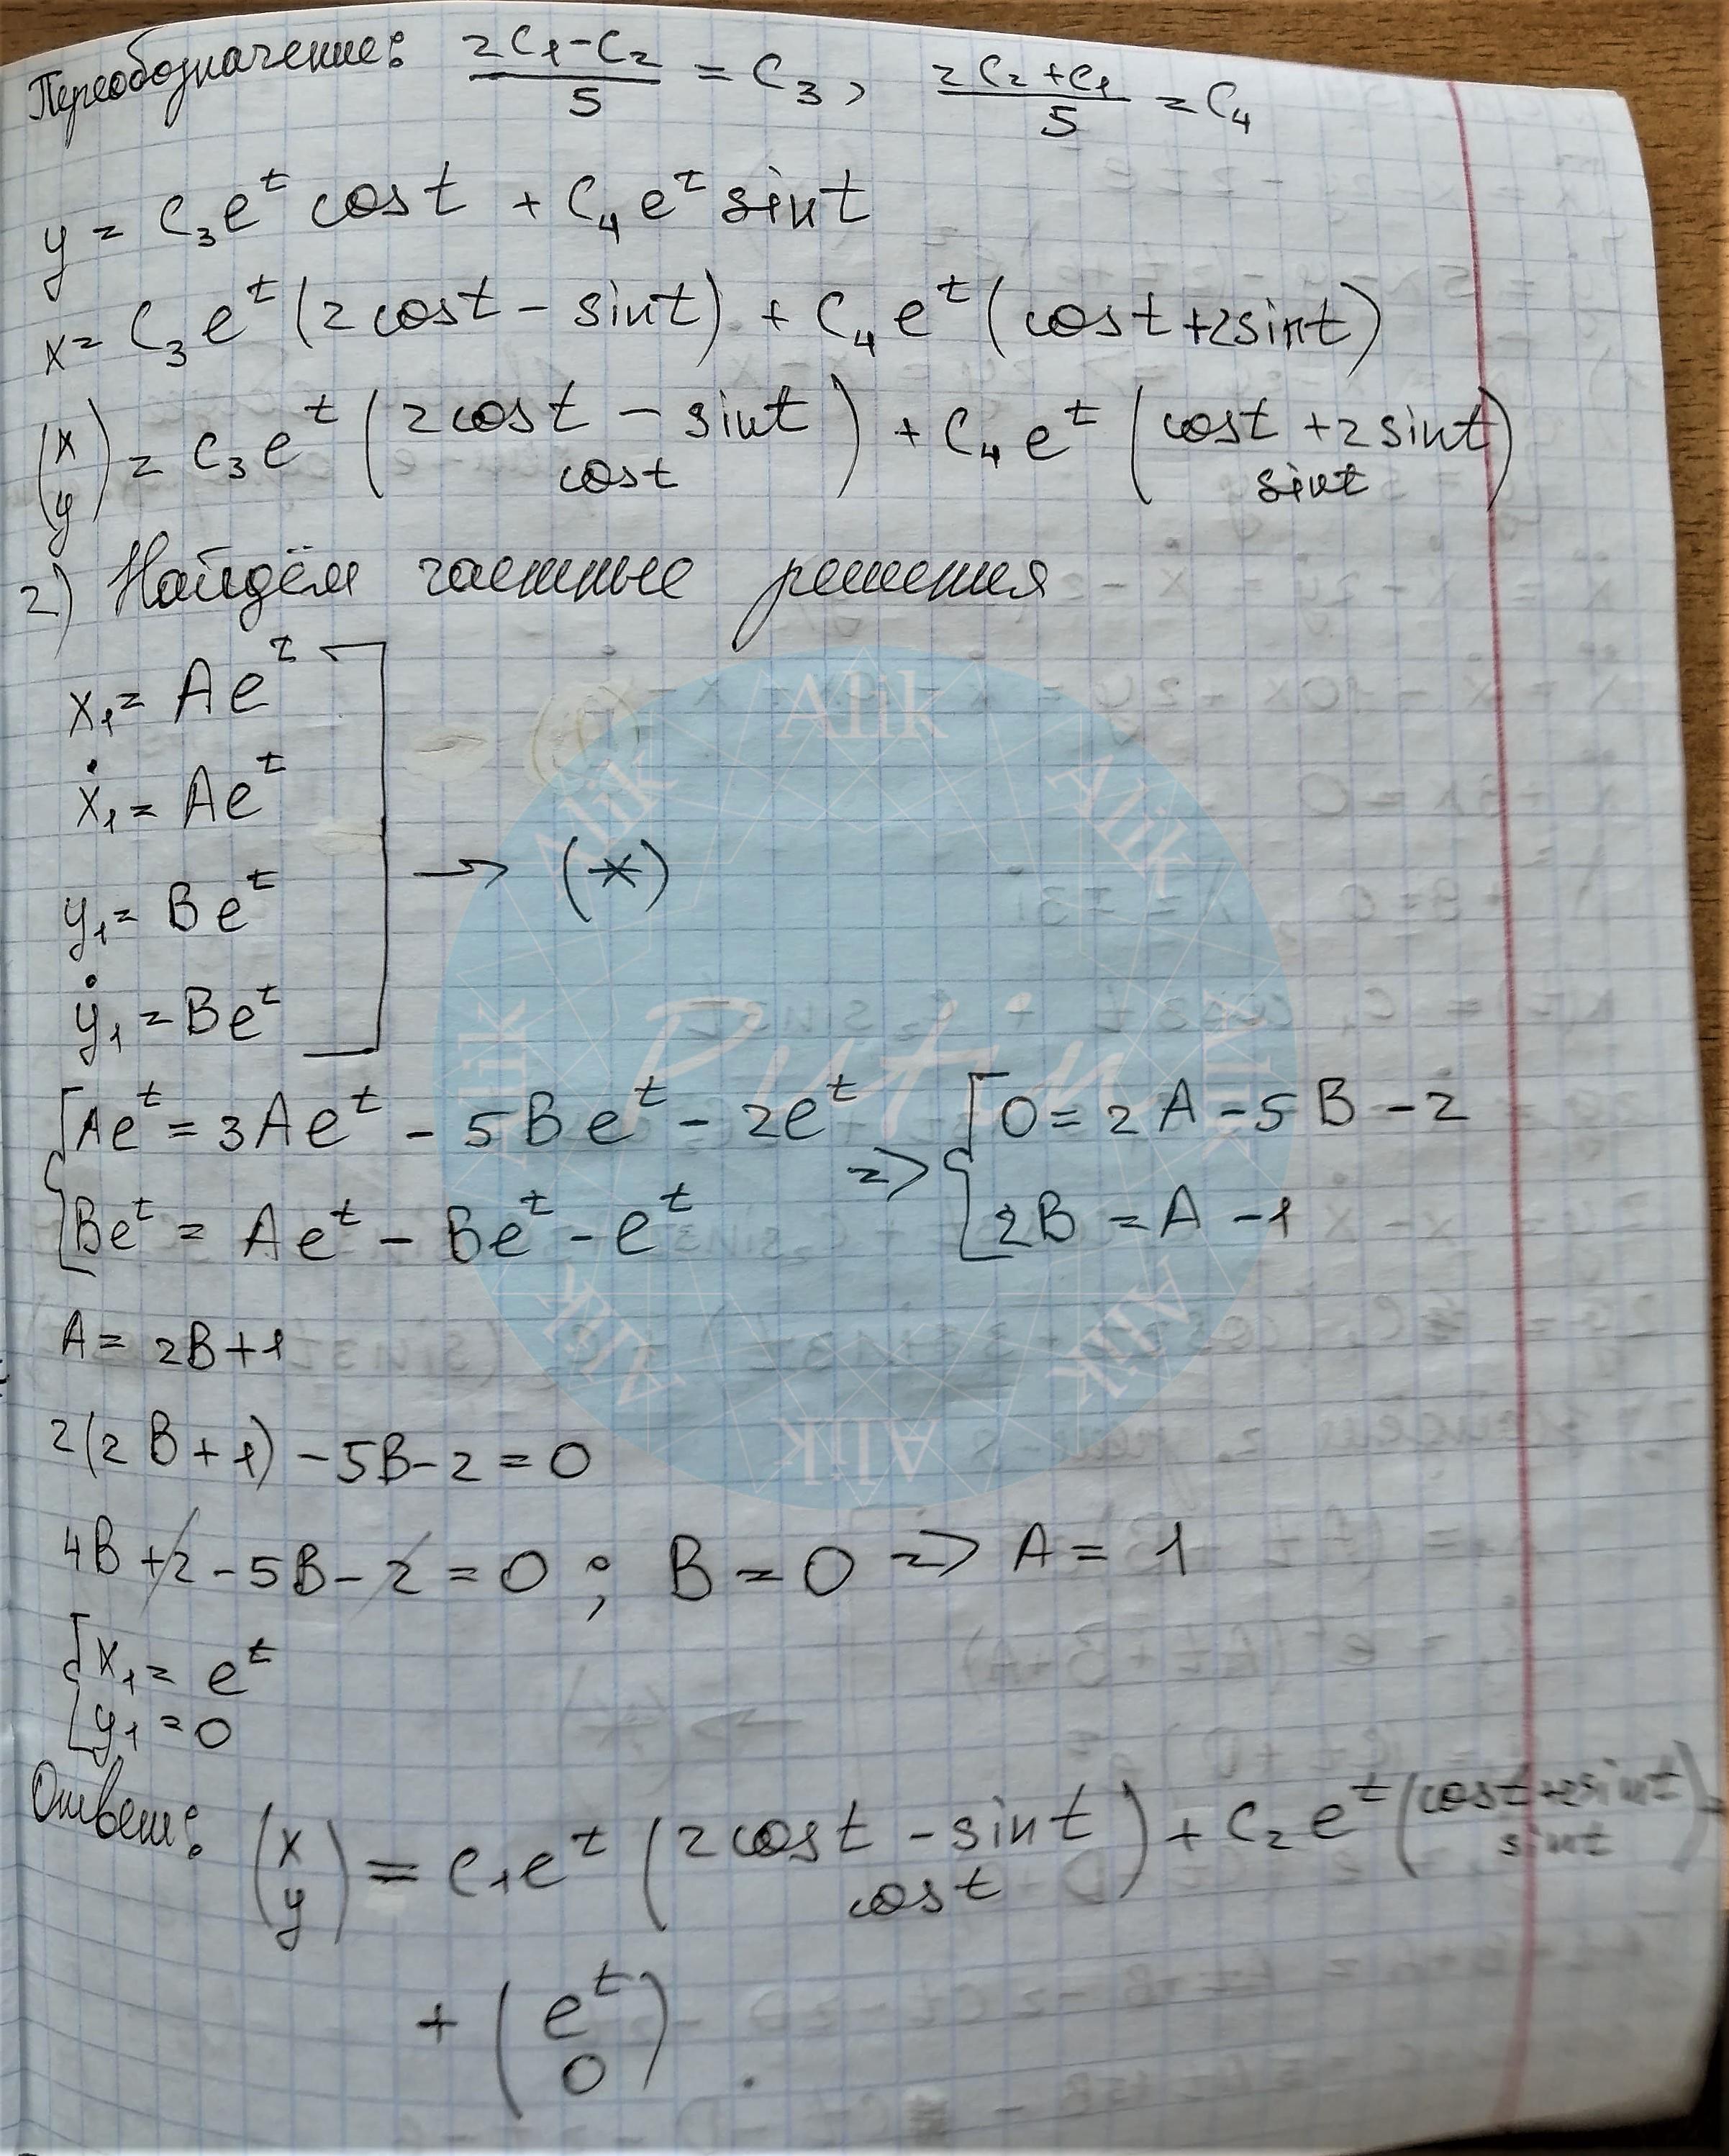 Переобозначение: (2C₁-C₂)/5 = C₃, (2C₂+C₁)/5 = C₄
y = C₃e^t cost + C₄e^t sint
x = C₃e^t(2cost - sint) + C₄e^t(cost+2sint)
(x y) = C₃e^t (2cost - sint cost) + C₄e^t (cost+2sint sint)
2) Найдём частные решения
x₁ = Ae^t
ẋ₁ = Ae^t
→ (*)
y₁ = Be^t
ẏ₁ = Be^t
{ Ae^t = 3Ae^t - 5Be^t - 2e^t => { 0 = 2A - 5B - 2
Be^t = Ae^t - Be^t - e^t 2B = A - 1
A = 2B+1
2(2B+1) - 5B - 2 = 0
4B + 2 - 5B - 2 = 0 ; B = 0 => A = 1
{ x₁ = e^t
y₁ = 0
Ответ: (x y) = C₁e^t (2cost - sint cost) + C₂e^t (cost+2sint sint)
+ (e^t 0).
Alik
Alik
Alik
Alik
Alik
Alik
Alik
Alik
Putin